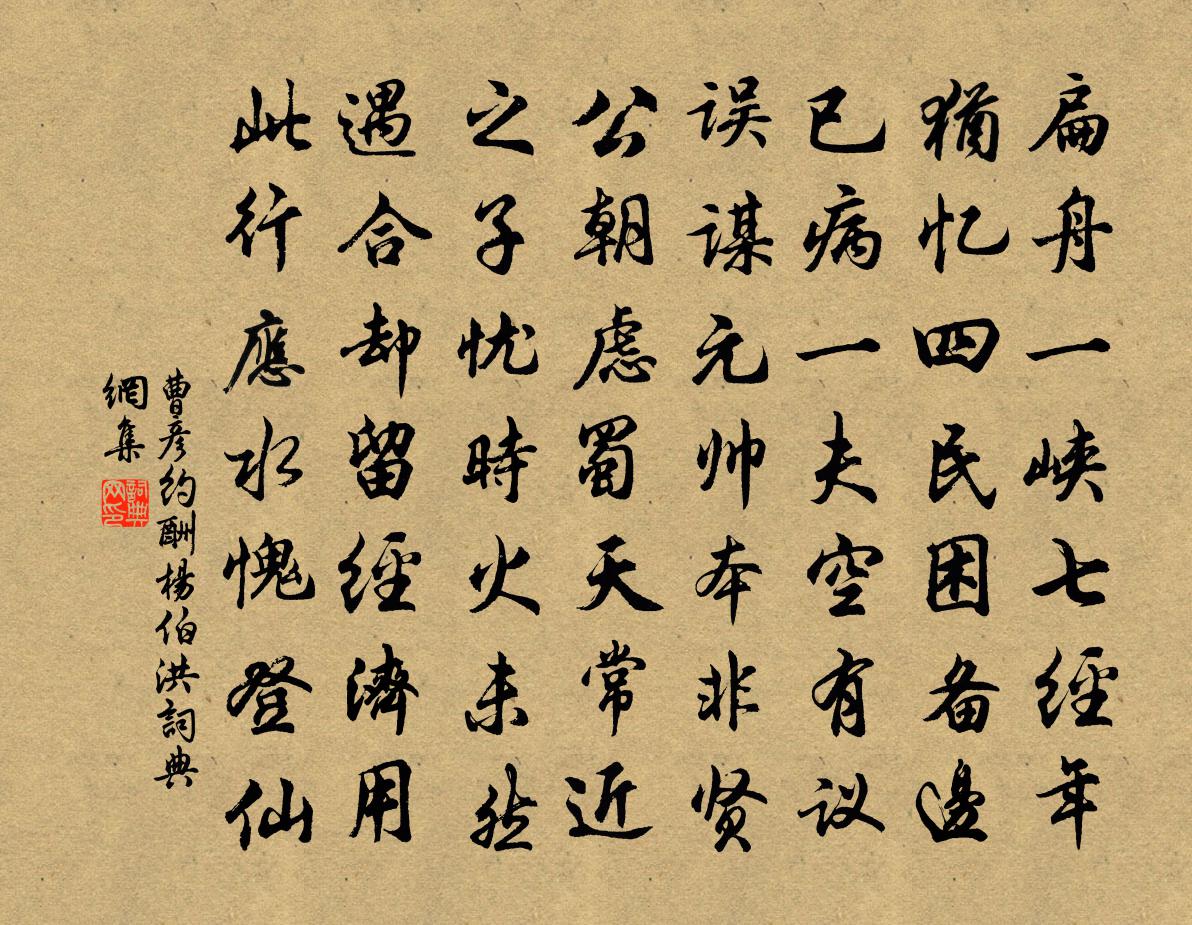 扁舟一峡七經年
猶忆四民困备邊
已病一夫空有议
误谋元帅本非贤
公朝虑蜀天常近
之子忧時火未然
遇合却留經濟用
此行應水愧登仙
曹彦约酬楊伯洪詞典
網集
詞典网印